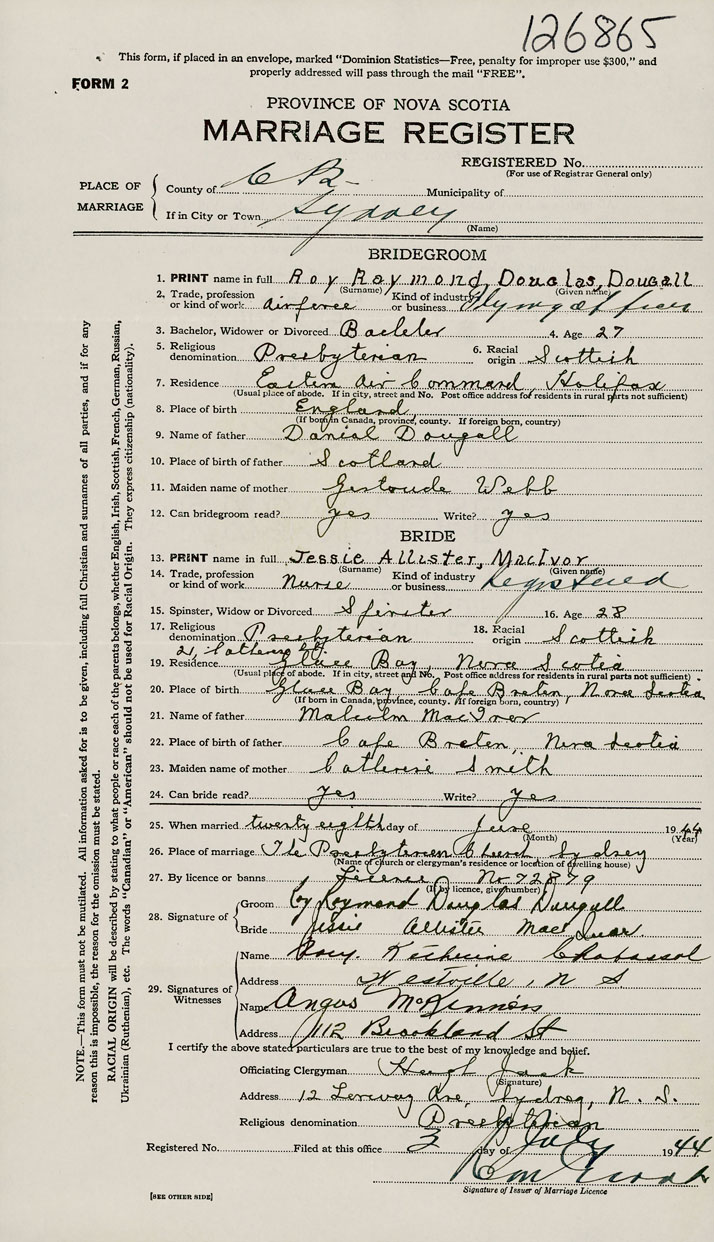 126865
This form, if placed in an envelope, marked "Dominion Statistics—Free, penalty for improper use $300," and
properly addressed will pass through the mail "FREE".
FORM 2
PROVINCE OF NOVA SCOTIA
MARRIAGE REGISTER
REGISTERED No.
(For use of Registrar General only)
PLACE OF MARRIAGE
County of C B Municipality of
If in City or Town Sydney
(Name)
BRIDEGROOM
1. PRINT name in full Roy Raymond, Douglas, Dougall
(Surname) (Given name)
2. Trade, profession or kind of work airforce Kind of industry or business Flying Officer
3. Bachelor, Widower or Divorced Bacheler 4. Age 27
5. Religious denomination Presbyterian 6. Racial origin Scottish
7. Residence Eastern Air Command, Halifax
(Usual place of abode. If in city, street and No. Post office address for residents in rural parts not sufficient)
8. Place of birth England
(If born in Canada, province, county. If foreign born, country)
9. Name of father Danial Dougall
10. Place of birth of father Scotland
11. Maiden name of mother Gertrude Webb
12. Can bridegroom read? yes Write? yes
BRIDE
13. PRINT name in full Jessie Allister, MacIvor
(Surname) (Given name)
14. Trade, profession or kind of work Nurse Kind of industry or business Registered
15. Spinster, Widow or Divorced Spinster 16. Age 28
17. Religious denomination Presbyterian 18. Racial origin Scottish
21,
19. Residence Glace Bay, Nova Scotia
(Usual place of abode. If in city, street and No. Post office address for residents in rural parts not sufficient)
20. Place of birth Glace Bay Cape Breton, Nova Scotia
(If born in Canada, province, county. If foreign born, country)
21. Name of father Malcolm MacIvor
22. Place of birth of father Cape Breton, Nova Scotia
23. Maiden name of mother Catherine Smith
24. Can bride read? yes Write? yes
25. When married twenty eighth day of June 1944
(Month) (Year)
26. Place of marriage The Presbyterian Church Sydney
(Name of church or clergyman's residence or location of dwelling house)
27. By licence or banns Licence No 72879
(If by licence, give number)
28. Signature of
Groom Roy Raymond Douglas Dougall
Bride Jessie Allister MacIvor
29. Signatures of Witnesses
Name Katherine
Address Westville, N S
Name Angus McKinnon
Address 112 Brookland St
I certify the above stated particulars are true to the best of my knowledge and belief.
Officiating Clergyman Hugh Jack
(Signature)
Address 12 Ave, Sydney, N. S.
Religious denomination Presbyterian
Registered No. Filed at this office 3 day of July 1944
Signature of Issuer of Marriage Licence
[SEE OTHER SIDE]
NOTE.—This form must not be mutilated. All information asked for is to be given, including full Christian and surnames of all parties, and if for any
reason this is impossible, the reason for the omission must be stated.
RACIAL ORIGIN will be described by stating to what people or race each of the parents belongs, whether English, Irish, Scottish, French, German, Russian,
Ukrainian (Ruthenian), etc. The words "Canadian" or "American" should not be used for Racial Origin. They express citizenship (nationality).